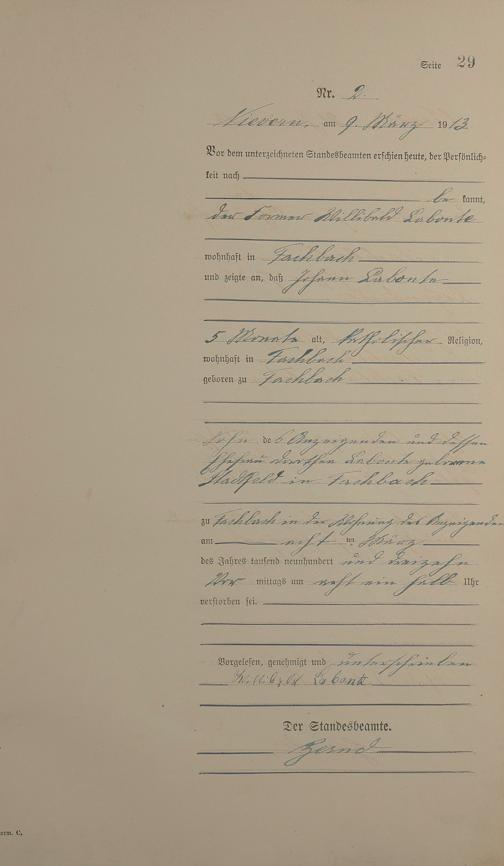 Seite 29
Nr. 2.
Nievern, am 9. März 1913.
Vor dem unterzeichneten Standesbeamten erschien heute, der Persönlich-
keit nach
be kannt,
der Former Willibald Labonte
wohnhaft in Fachbach
und zeigte an, daß Johann Labonte
5 Monate alt, katholischer Religion,
wohnhaft in Fachbach
geboren zu Fachbach
Sohn des Anzeigenden und dessen
Ehefrau Dorothea Labonte geborene
Stadtfeld in Fachbach
zu Fachbach in der Wohnung des Anzeigenden
am acht ten März
des Jahres tausend neunhundert und dreizehn
Vor mittags um acht ein halb Uhr
verstorben sei.
Vorgelesen, genehmigt und unterschrieben
Willibald Labonte
Der Standesbeamte.